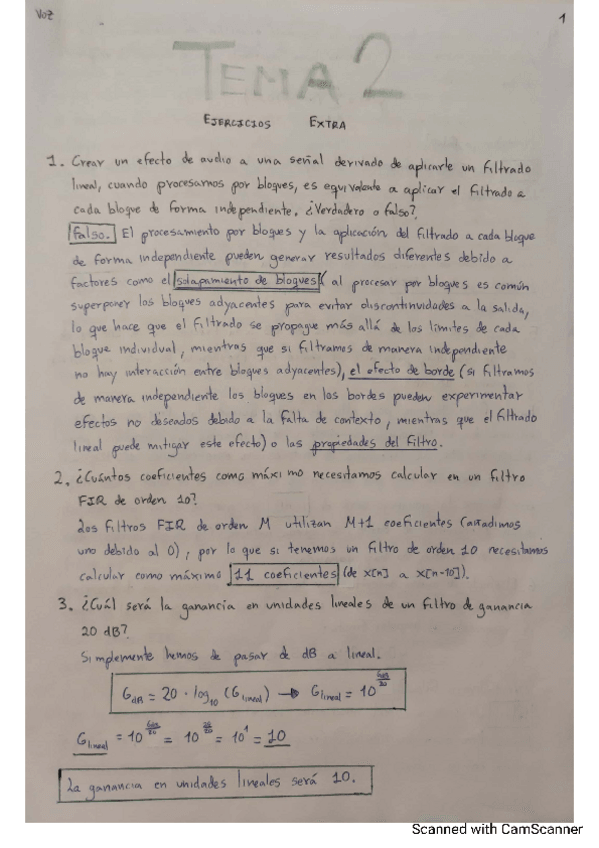 Voz
1
TEMA 2
EJERCICIOS EXTRA
1. Crear un efecto de audio a una señal derivado de aplicarle un filtrado
lineal, cuando procesamos por bloques, es equivalente a aplicar el filtrado a
cada bloque de forma independiente. ¿Verdadero o falso?
Falso. El procesamiento por bloques y la aplicación del filtrado a cada bloque
de forma independiente pueden generar resultados diferentes debido a
factores como el solapamiento de bloques (al procesar por bloques es común
superponer los bloques adyacentes para evitar discontinuidades a la salida,
lo que hace que el filtrado se propague más allá de los límites de cada
bloque individual, mientras que si filtramos de manera independiente
no hay interacción entre bloques adyacentes), el efecto de borde (si filtramos
de manera independiente los bloques en los bordes pueden experimentar
efectos no deseados debido a la falta de contexto, mientras que el filtrado
lineal puede mitigar este efecto) o las propiedades del filtro.
2. ¿Cuántos coeficientes como máximo necesitamos calcular en un filtro
FIR de orden 10?
Los filtros FIR de orden M utilizan M+1 coeficientes (añadimos
uno debido al 0), por lo que si tenemos un filtro de orden 10 necesitamos
calcular como máximo 11 coeficientes (de x[n] a x[n-10]).
3. ¿Cuál será la ganancia en unidades lineales de un filtro de ganancia
20 dB?
Simplemente hemos de pasar de dB a lineal.
G_dB = 20 · log₁₀ (G_lineal) → G_lineal = 10^(G_dB/20)
G_lineal = 10^(G_dB/20) = 10^(20/20) = 10¹ = 10
La ganancia en unidades lineales será 10.
Scanned with CamScanner